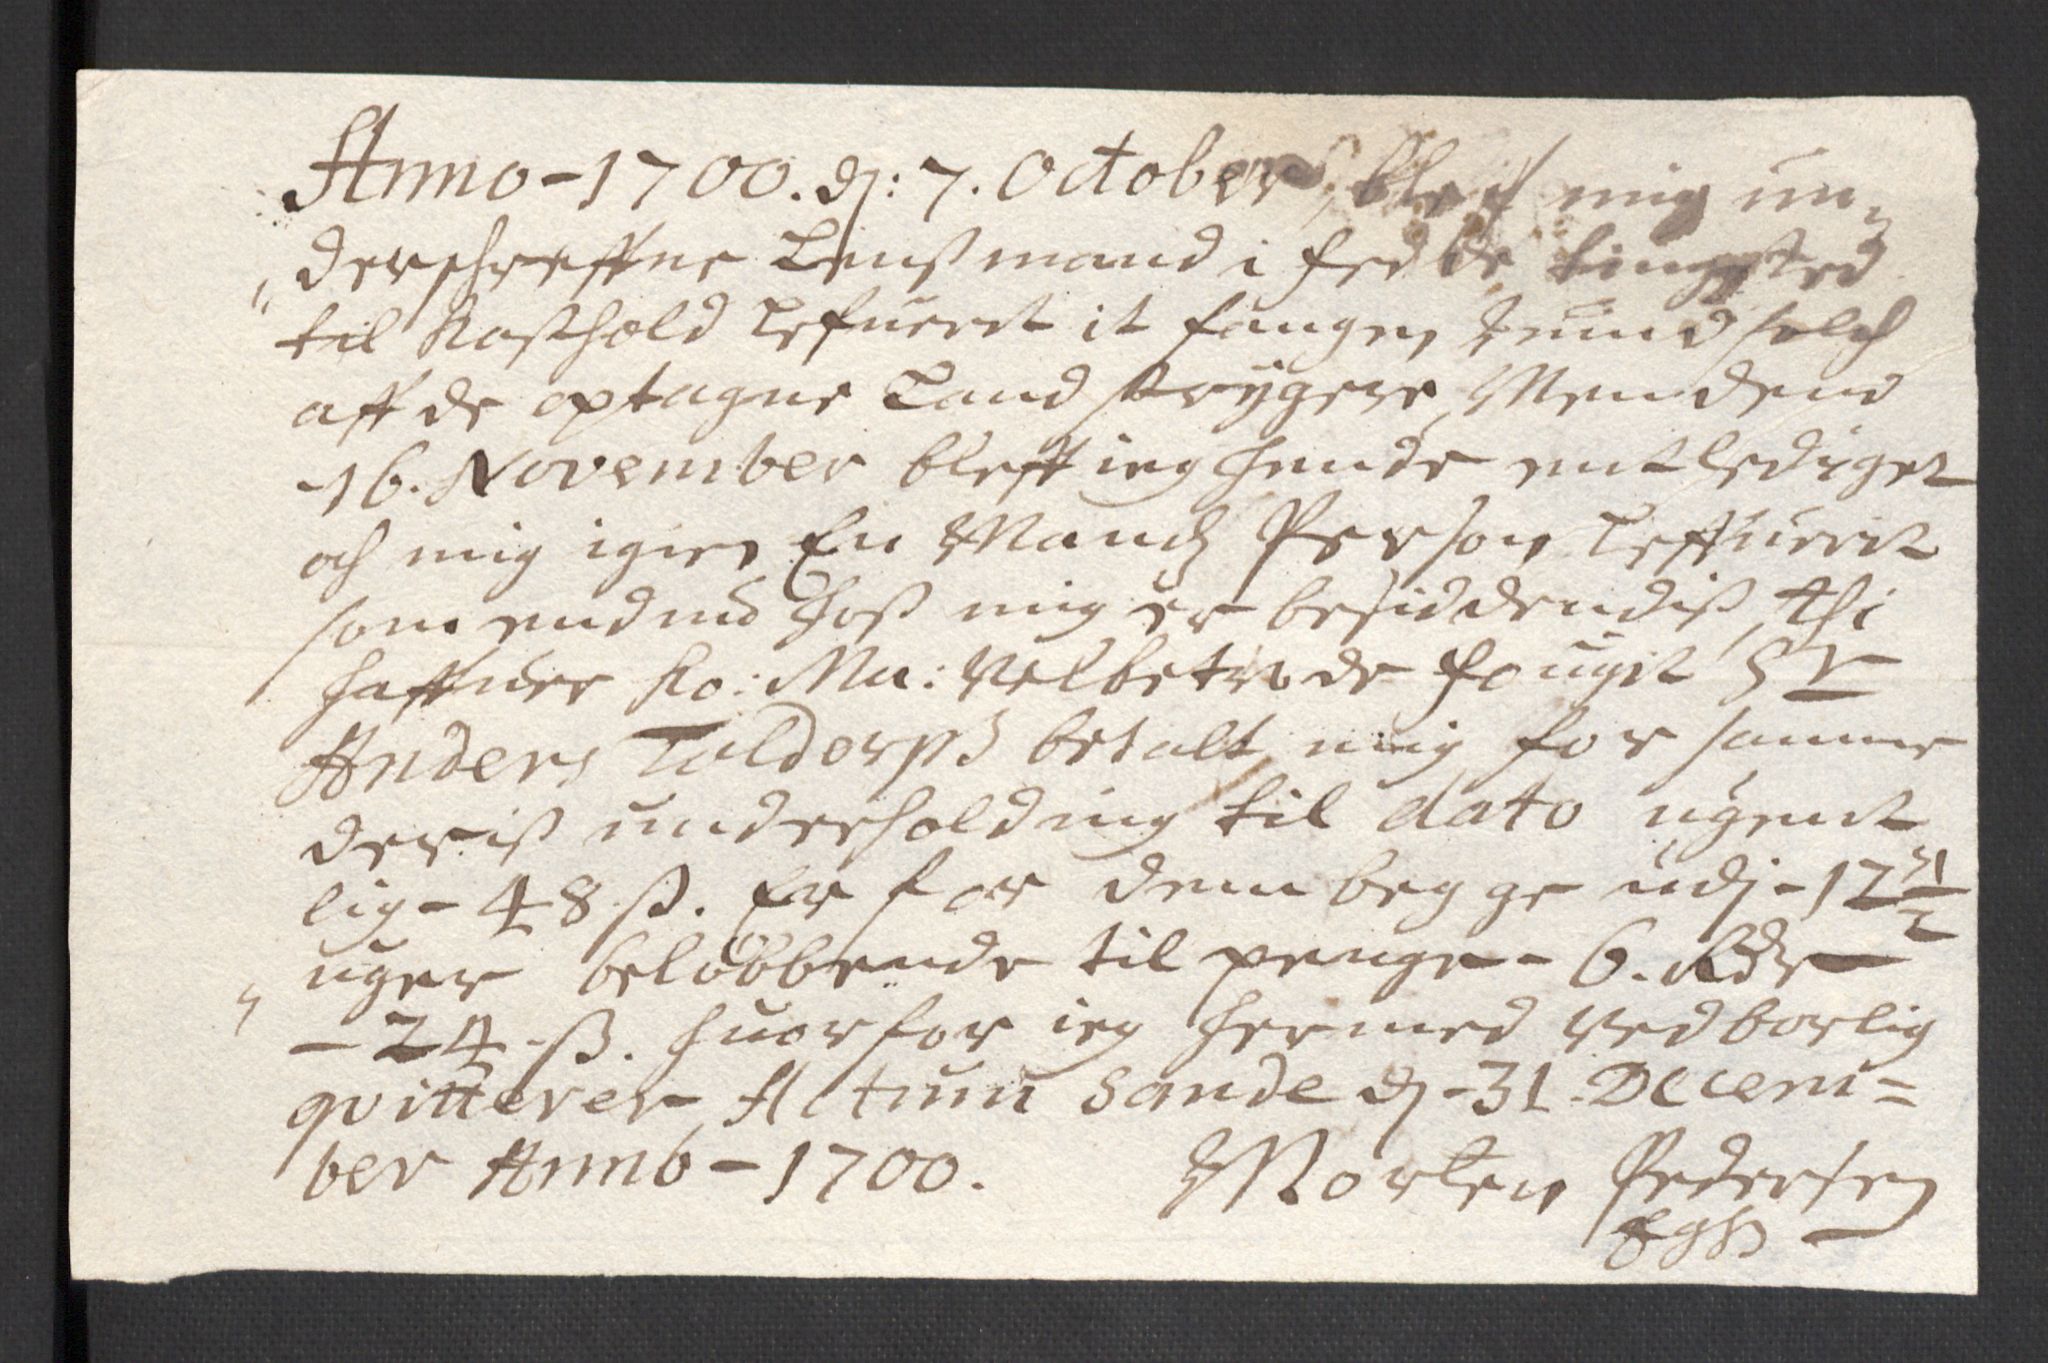 Anno - 1700. dj: 7. October, bleff mig un=
derschreffne Lensmand i fedde tingsted
til Kosthold Lefueret it fangen quindfolch
aff de optagne Land strygere, Men dend
16. November bleff ieg hende entlediget
och mig igien En Mands Person Leffueret
som endnu hoss mig er besiddendiss, thi
haffuer Ko: Ma: Velbetrode fouget Sr
Anders Toldorph betalt mig for samme
deriss underholding til dato ugent
lig - 48 ß. Er for dem begge udj - 12 1/2
uger belöbbende til penge - 6. Rdr
- 24 ß. huorfor ieg hermed vedborlig
qvitterer, Actum Sande dj - 31. Decem=
ber Anno - 1700. Morten Pedersen
Eghd